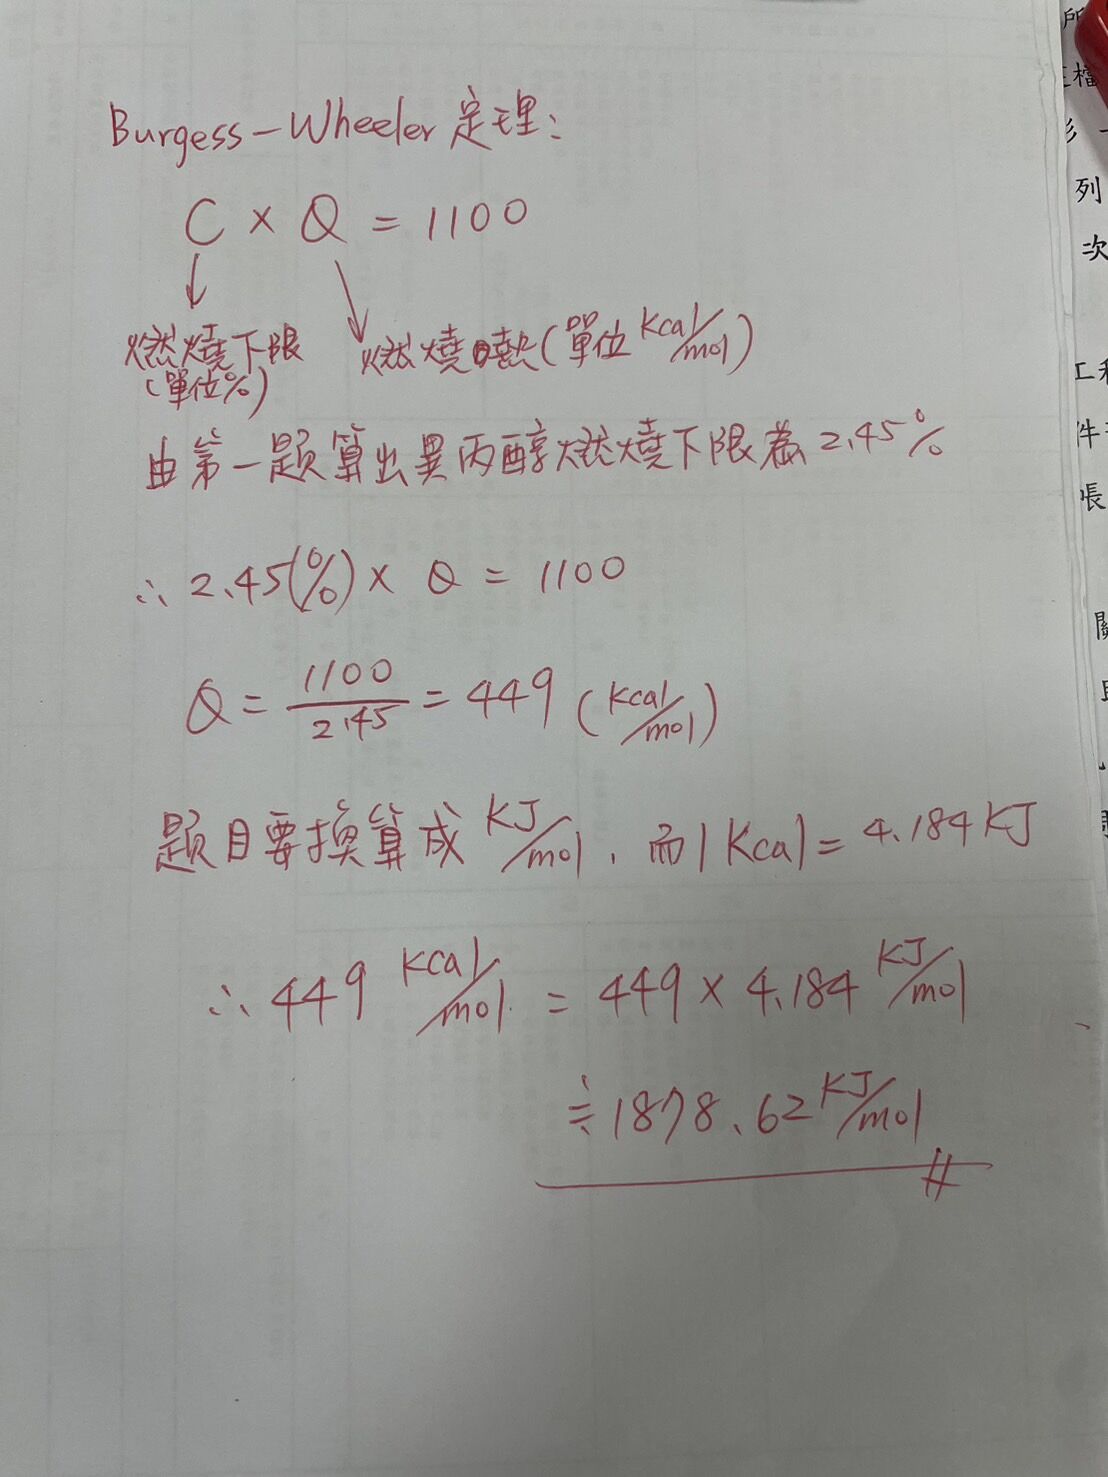 Burgess-Wheeler 定理:
C × Q = 1100
燃燒下限 燃燒熱(單位 Kcal/mol)
(單位%)
由第一題算出異丙醇燃燒下限為 2.45%
∴ 2.45(%) × Q = 1100
Q = 1100/2.45 = 449 (Kcal/mol)
題目要換算成 KJ/mol, 而 1 Kcal = 4.184 KJ
∴ 449 Kcal/mol = 449 × 4.184 KJ/mol
≒ 1878.62 KJ/mol #
列
次
件
帳